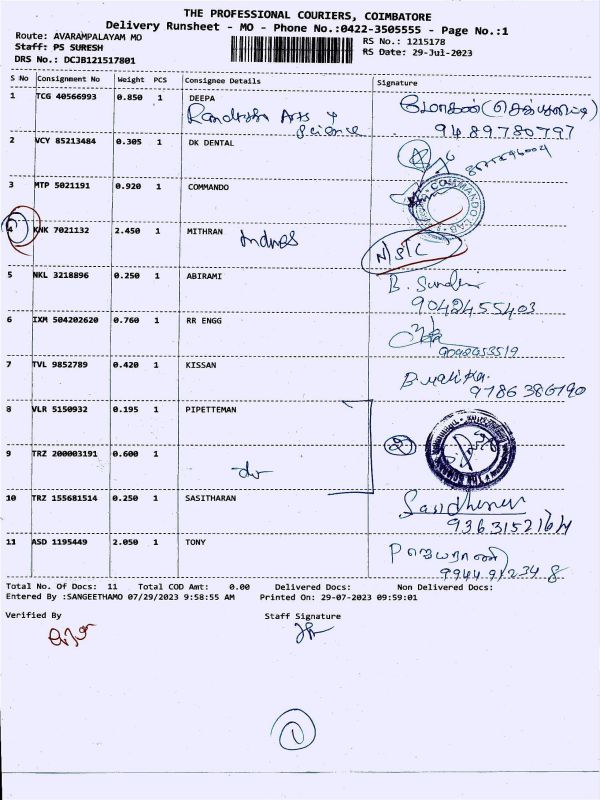 THE PROFESSIONAL COURIERS, COIMBATORE
Delivery Runsheet - MO - Phone No.:0422-3505555 - Page No.:1
Route: AVARAMPALAYAM MO
Staff: PS SURESH
DRS No.: DCJB121517801
RS No.: 1215178
RS Date: 29-Jul-2023
S No Consignment No Weight PCS Consignee Details Signature
1 TCG 40566993 0.850 1 DEEPA
Arts & Science
9489780797
2 VCY 85213484 0.305 1 DK DENTAL
3 MTP 5021191 0.920 1 COMMANDO
COMMANDO
4 KNK 7021132 2.450 1 MITHRAN
N/S/C
5 NKL 3218896 0.250 1 ABIRAMI
9042455403
6 IXM 504202620 0.760 1 RR ENGG
7 TVL 9852789 0.420 1 KISSAN
9786386190
8 VLR 5150932 0.195 1 PIPETTEMAN
2
9 TRZ 200003191 0.600 1
do
10 TRZ 155681514 0.250 1 SASITHARAN
9363152164
11 ASD 1195449 2.050 1 TONY
9944912348
Total No. Of Docs: 11 Total COD Amt: 0.00 Delivered Docs: Non Delivered Docs:
Entered By :SANGEETHAMO 07/29/2023 9:58:55 AM Printed On: 29-07-2023 09:59:01
Verified By Staff Signature
1